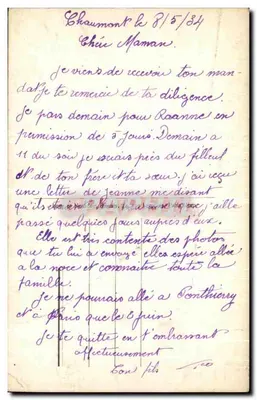 Chaumont le 8/5/34
Chère Maman.
Je viens de recevoir ton man-
dat je te remercie de ta diligence.
Je pars demain pour Roanne en
permission de 5 Jours. Demain a
11 du soir je serais près du filleul
et de ton frère et ta sœur, j'ai reçu
une lettre de Jeanne me disant
qu'ils que j'aille
passé quelques jours auprès d'eux.
Elle est très contente des photos
que tu lui a envoyé elles espère allée
a la noce et connaitre toute la
famille.
Je ne pourrais allé a Ponthierry
et a Paris que le 6 juin.
Je te quitte en t'embrassant
affectueusement
Ton fils